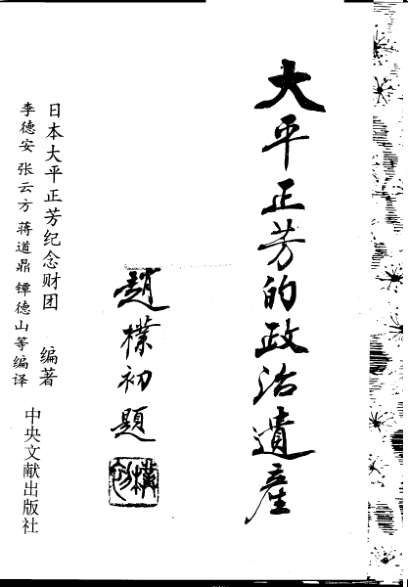 大平正芳的政治遺產
趙樸初題
日本大平正芳纪念财团 编著
李德安 张云方 蒋道鼎 镡德山等编译
中央文献出版社